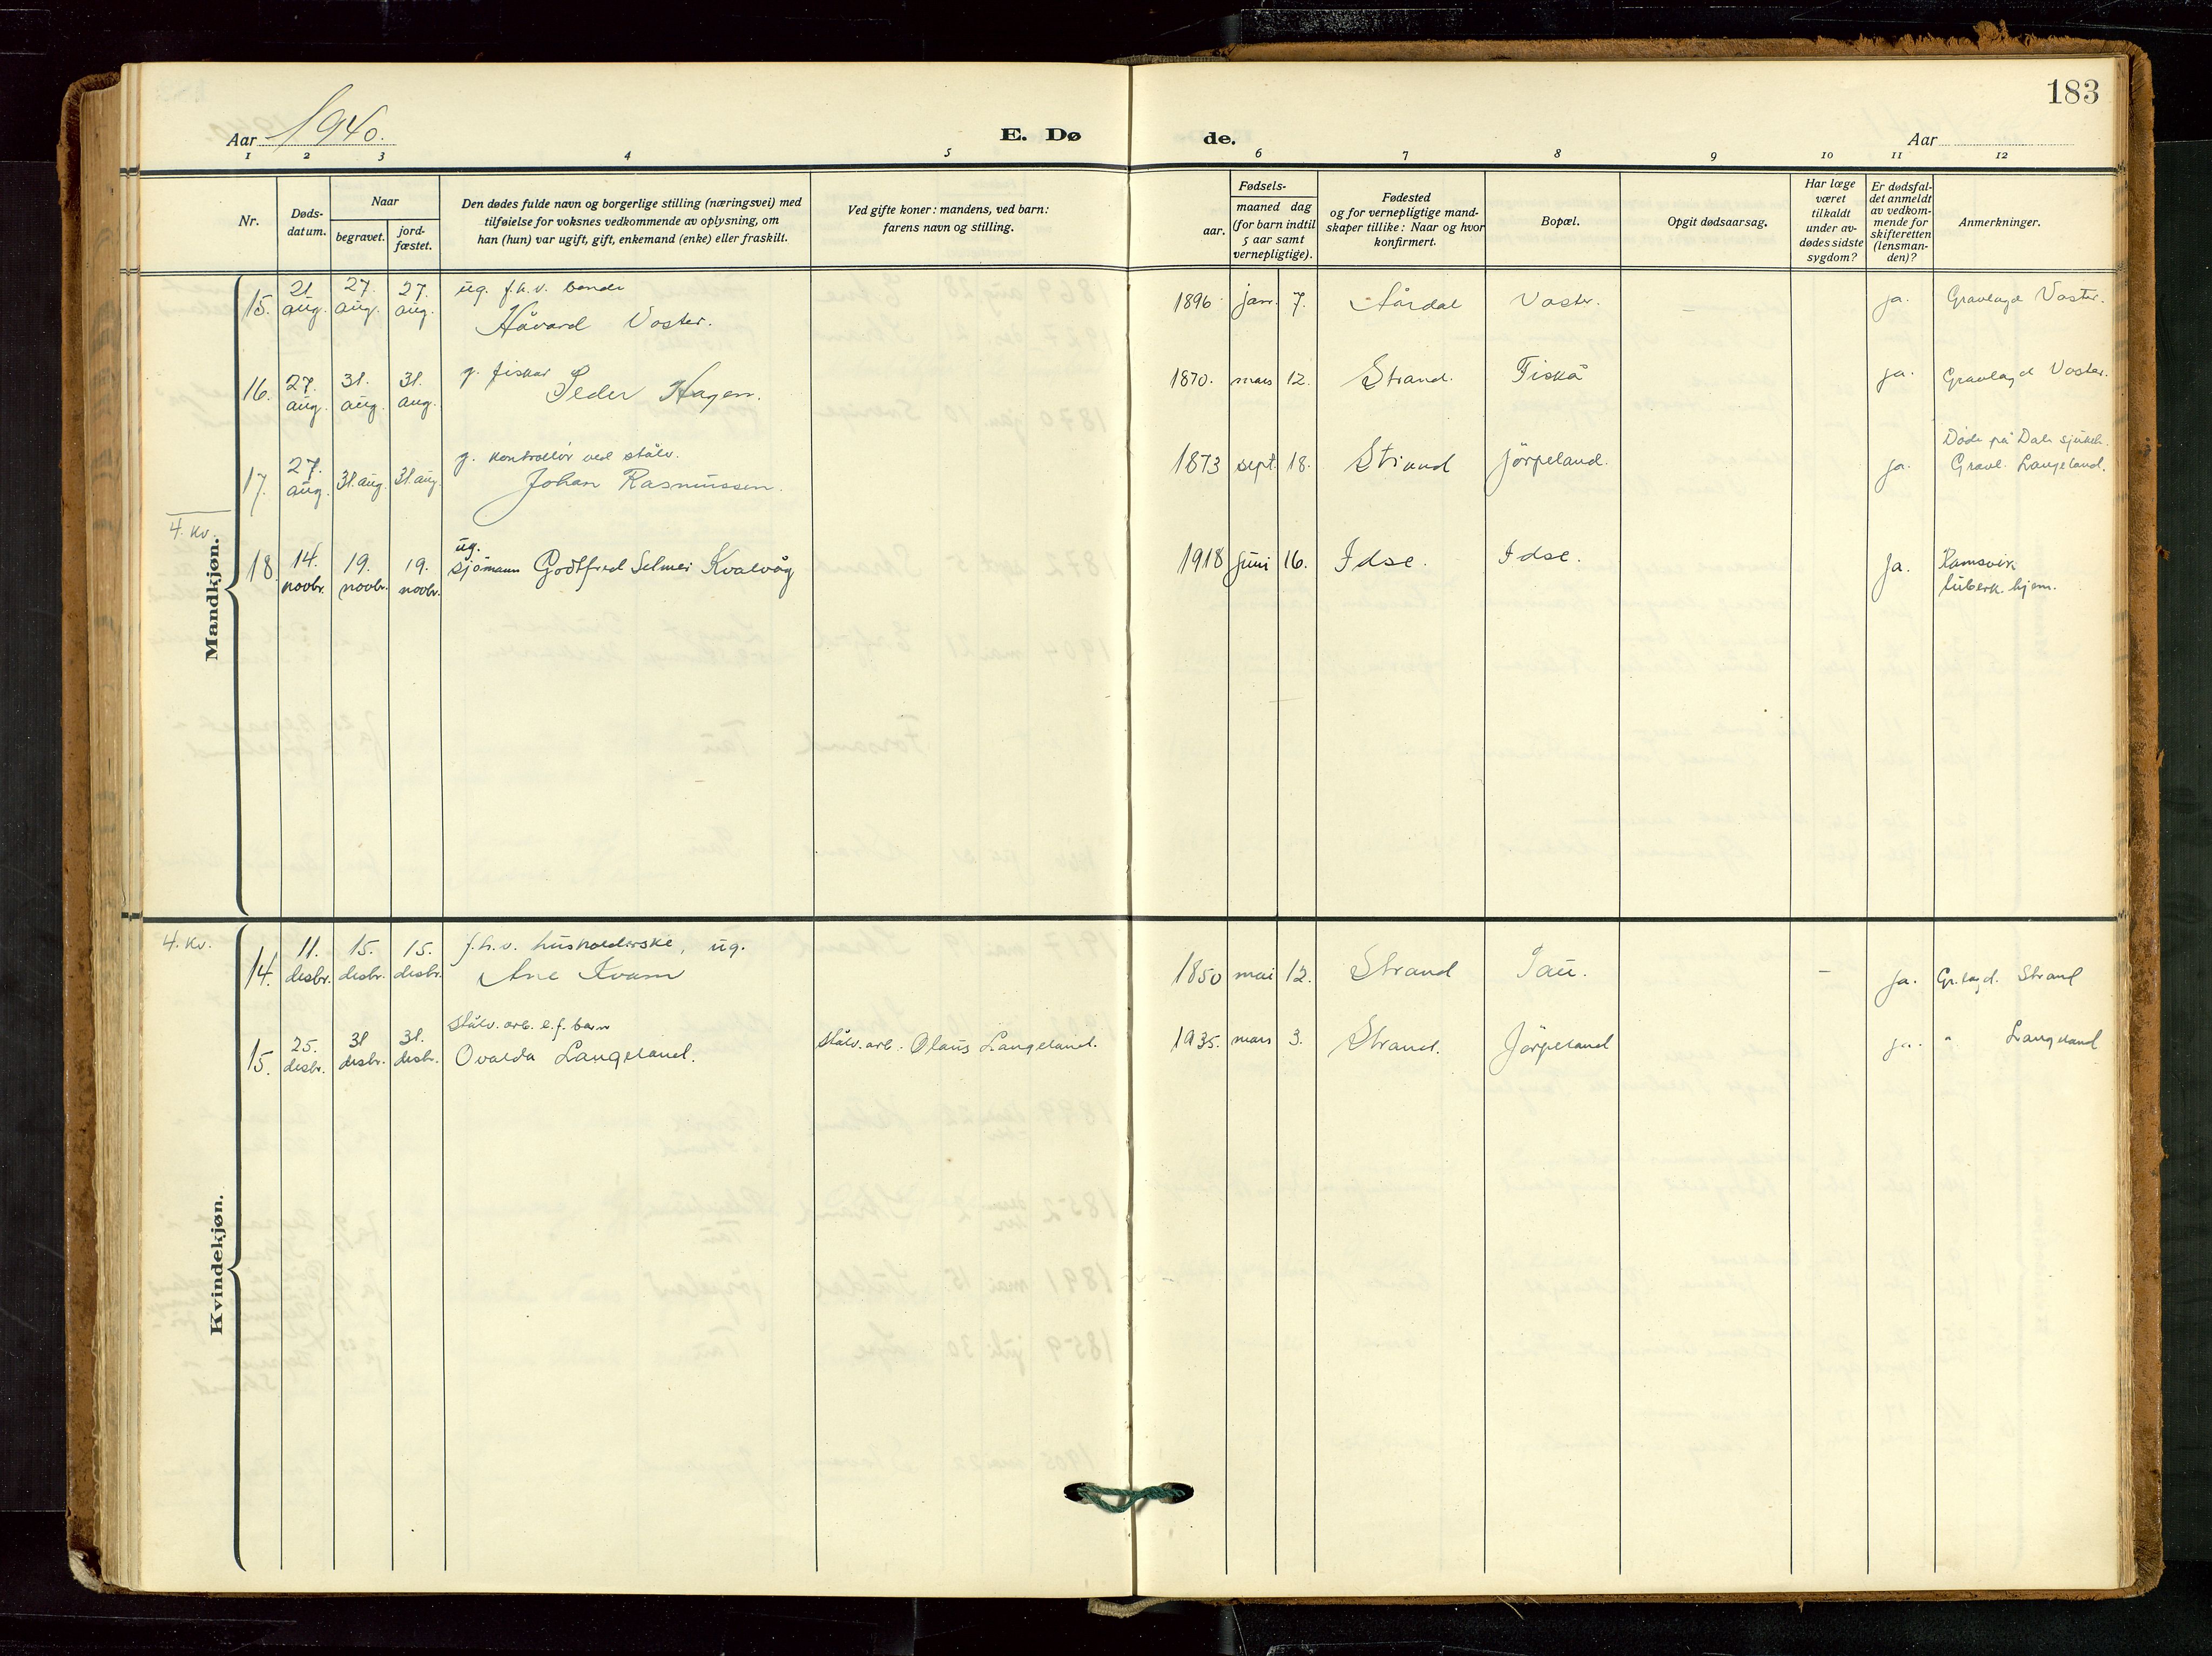 183
Aar 1940.
E. Dø de.
Aar
1 2 3 4 5 6 7 8 9 10 11 12
Nr.
Døds-
datum.
Naar
begravet.
jord-
fæstet.
Den dødes fulde navn og borgerlige stilling (næringsvei) med
tilføielse for voksnes vedkommende av oplysning, om
han (hun) var ugift, gift, enkemand (enke) eller fraskilt.
Ved gifte koner: mandens, ved barn:
farens navn og stilling.
Fødsels-
aar.
maaned dag
(for barn indtil
5 aar samt
vernepligtige).
Fødested
og for vernepligtige mand-
skaper tillike: Naar og hvor
konfirmert.
Bopæl.
Opgit dødsaarsag.
Har læge
været
tilkaldt
under av-
dødes sidste
sygdom?
Er dødsfal-
det anmeldt
av vedkom-
mende for
skifteretten
(lensman-
den)?
Anmerkninger.
Mandkjøn.
15. 21. aug. 27. aug. 27. aug. ug. f.h.v. bonde
Håvard Voster. 1896 jan. 7. Årdal Voster. ja. Gravlagd Voster.
16. 27. aug. 31. aug. 31. aug. g. fiskar
Peder Hagen. 1870. mars 12. Strand. Fiskå ja. Gravlagd Voster.
17. 27. aug. 31. aug. 31. aug. g. kontrollör ved stålv.
Johan Rasmussen. 1873 sept. 18. Strand Jörpeland. ja. Döde på Dale sjukeh.
Gravl. Langeland.
4. kv.
18. 14. novbr. 19. novbr. 19. novbr. ug.
sjömann Godtfred Selmer Kvalvåg 1918 juni 16. Idse. Idse. Ja. Ramsvik
tuberk. hjem.
Kvindekjøn.
4. kv.
14. 11. desbr. 15. desbr. 15. desbr. f.h.v. husholderske, ug.
Ane Kvam 1850 mai 12. Strand Tau. – ja. Gr.lagd. Strand
15. 25. desbr. 31. desbr. 31. desbr. Stålv. arb. e.f. barn
Ovalda Langeland. Stålv. arb. Olaus Langeland. 1935. mars 3. Strand. Jörpeland ja. " Langeland